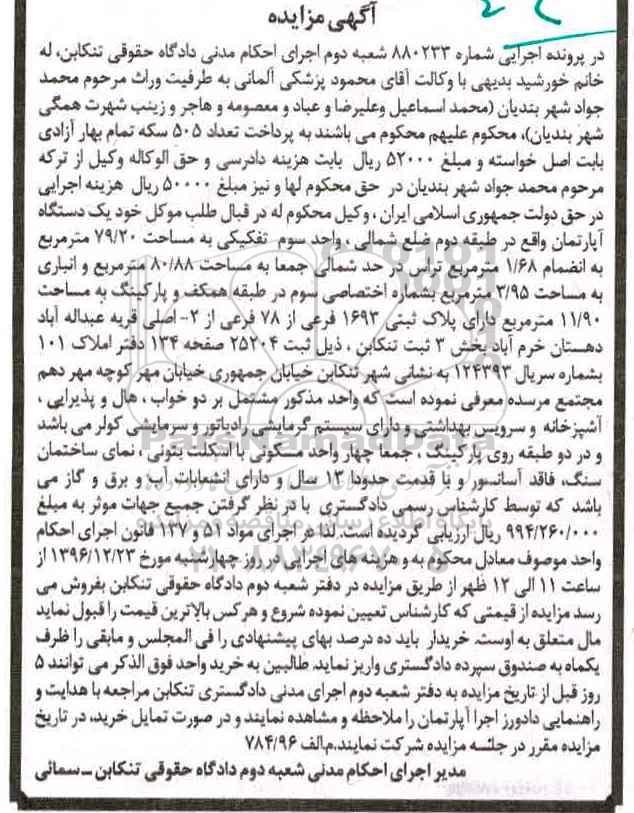 آگهی مزایده
در پرونده اجرایی شماره ۸۸۰۲۳۳ شعبه دوم اجرای احکام مدنی دادگاه حقوقی تنکابن، له
خانم خورشید بدیهی با وکالت آقای محمود پزشکی آلمانی به طرفیت وراث مرحوم محمد
جواد شهر بندیان (محمد اسماعیل وعلیرضا و عباد و معصومه و هاجر و زینب شهرت همگی
شهر بندیان)، محکوم علیهم محکوم می باشند به پرداخت تعداد ۵۰۵ سکه تمام بهار آزادی
بابت اصل خواسته و مبلغ ۵۲۰۰۰ ریال بابت هزینه دادرسی و حق الوکاله وکیل از ترکه
مرحوم محمد جواد شهر بندیان در حق محکوم لها و نیز مبلغ ۵۰۰۰۰ ریال هزینه اجرایی
در حق دولت جمهوری اسلامی ایران ، وکیل محکوم له در قبال طلب موکل خود یک دستگاه
آپارتمان واقع در طبقه دوم ضلع شمالی ، واحد سوم تفکیکی به مساحت ۷۹/۲۰ مترمربع
به انضمام ۱/۶۸ مترمربع تراس در حد شمالی جمعا به مساحت ۸۰/۸۸ مترمربع و انباری
به مساحت ۳/۹۵ مترمربع بشماره اختصاصی سوم در طبقه همکف و پارکینگ به مساحت
۱۱/۹۰ مترمربع دارای پلاک ثبتی ۱۶۹۳ فرعی از ۷۸ فرعی از ۲- اصلی قریه عبداله آباد
دهستان خرم آباد بخش ۳ ثبت تنکابن ، ذیل ثبت ۲۵۲۰۴ صفحه ۱۳۴ دفتر املاک ۱۰۱
بشماره سریال ۱۲۴۳۹۳ به نشانی شهر تنکابن خیابان جمهوری خیابان مهر کوچه مهر دهم
مجتمع مرسده معرفی نموده است که واحد مذکور مشتمل بر دو خواب ، هال و پذیرایی ،
آشپزخانه و سرویس بهداشتی و دارای سیستم گرمایشی رادیاتور و سرمایشی کولر می باشد
و در دو طبقه روی پارکینگ ، جمعا چهار واحد مسکونی با اسکلت بتونی ، نمای ساختمان
سنگ، فاقد آسانسور و با قدمت حدودا ۱۳ سال و دارای انشعابات آب و برق و گاز می
باشد که توسط کارشناس رسمی دادگستری با در نظر گرفتن جمیع جهات موثر به مبلغ
۹۹۴/۲۶۰/۰۰۰ ریال ارزیابی گردیده است. لذا در اجرای مواد ۵۱ و ۱۳۷ قانون اجرای احکام
واحد موصوف معادل محکوم به و هزینه های اجرایی در روز چهارشنبه مورخ ۱۳۹۶/۱۲/۲۳ از
ساعت ۱۱ الی ۱۲ ظهر از طریق مزایده در دفتر شعبه دوم دادگاه حقوقی تنکابن بفروش می
رسد مزایده از قیمتی که کارشناس تعیین نموده شروع و هر کس بالاترین قیمت را قبول نماید
مال متعلق به اوست. خریدار باید ده درصد بهای پیشنهادی را فی المجلس و مابقی را ظرف
یکماه به صندوق سپرده دادگستری واریز نماید. طالبین به خرید واحد فوق الذکر می توانند ۵
روز قبل از تاریخ مزایده به دفتر شعبه دوم اجرای مدنی دادگستری تنکابن مراجعه با هدایت و
راهنمایی دادورز اجرا آپارتمان را ملاحظه و مشاهده نمایند و در صورت تمایل خرید، در تاریخ
مزایده مقرر در جلسه مزایده شرکت نمایند.م‌الف ۷۸۴/۹۶
مدیر اجرای احکام مدنی شعبه دوم دادگاه حقوقی تنکابن ـ سمائی
ParsNamadData